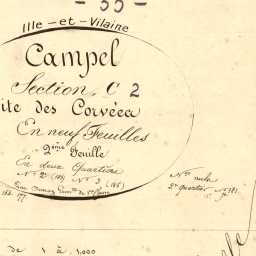 - 35 -
Ille-et-Vilaine
Campel
Section, C 2
ite des Corvées
En neuf Feuilles
2ème Feuille
En deux Quartiers
Nº 2 (169) Nº 3 (185)
Nº
2e quartier Nº 181
de 1 à 1.000